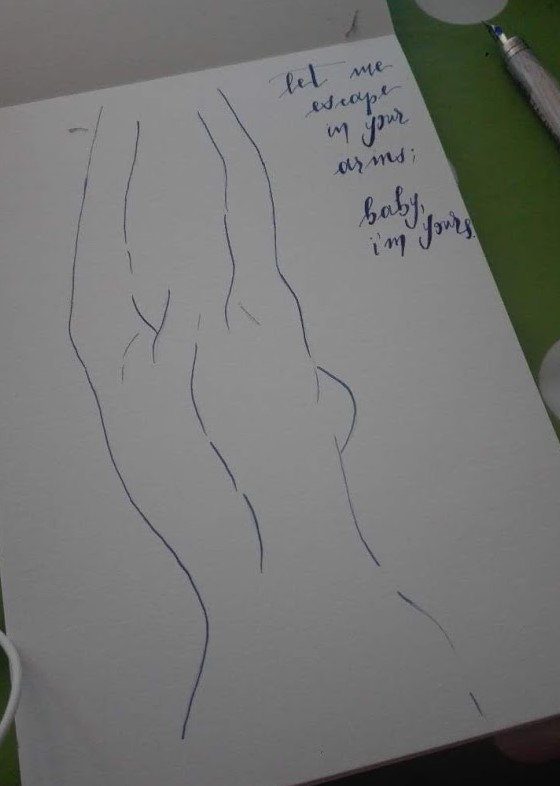 let me
escape
in your
arms;
baby,
i'm yours.